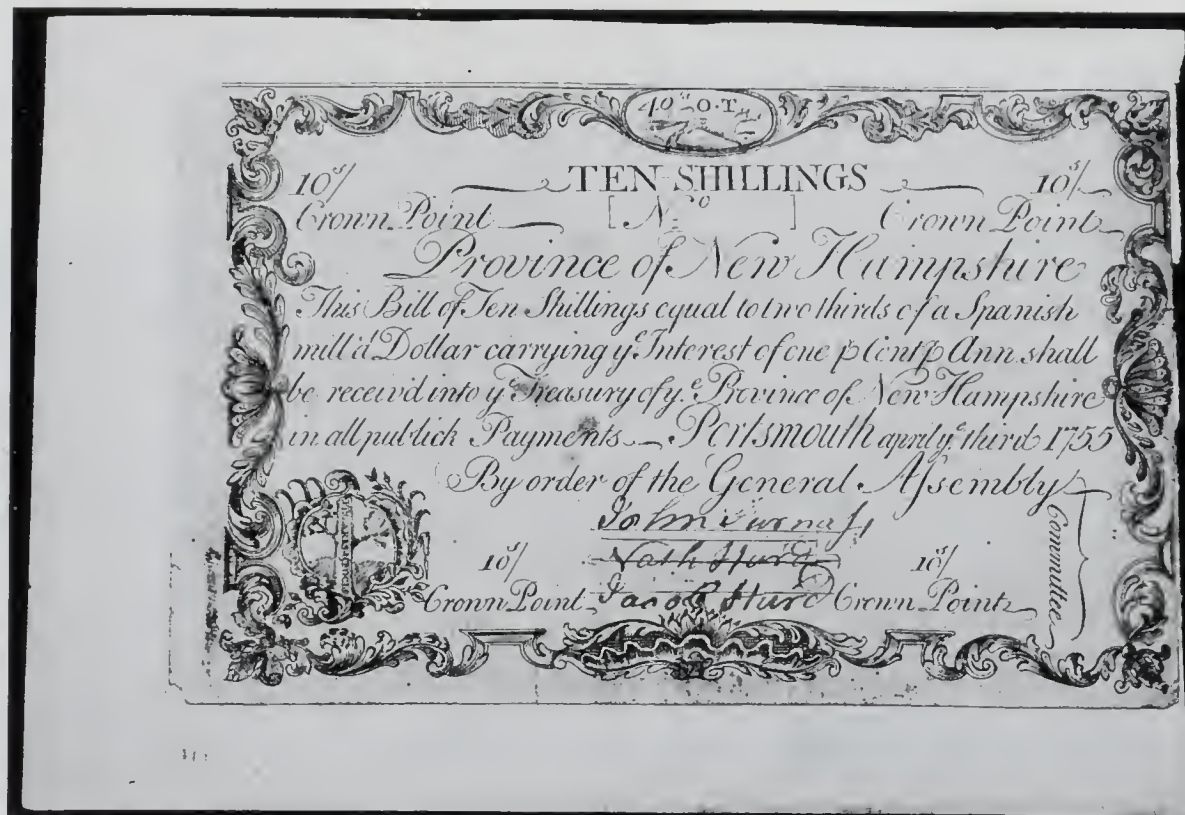 40ˢ O.T.
TEN SHILLINGS
10ˢ/ 10ˢ/
Crown Point [Nº ] Crown Point
Province of New Hampshire
This Bill of Ten Shillings equal to two thirds of a Spanish
mill'd Dollar carrying yᵉ Interest of one p Cent p Ann. shall
be receiv'd into yᵉ Treasury of yᵉ Province of New Hampshire
in all publick Payments Portsmouth april yᵉ third 1755
By order of the General Assembly
John
10ˢ/ Nath Hurd 10ˢ/
Crown Point Jacob Hurd Crown Point
Committee